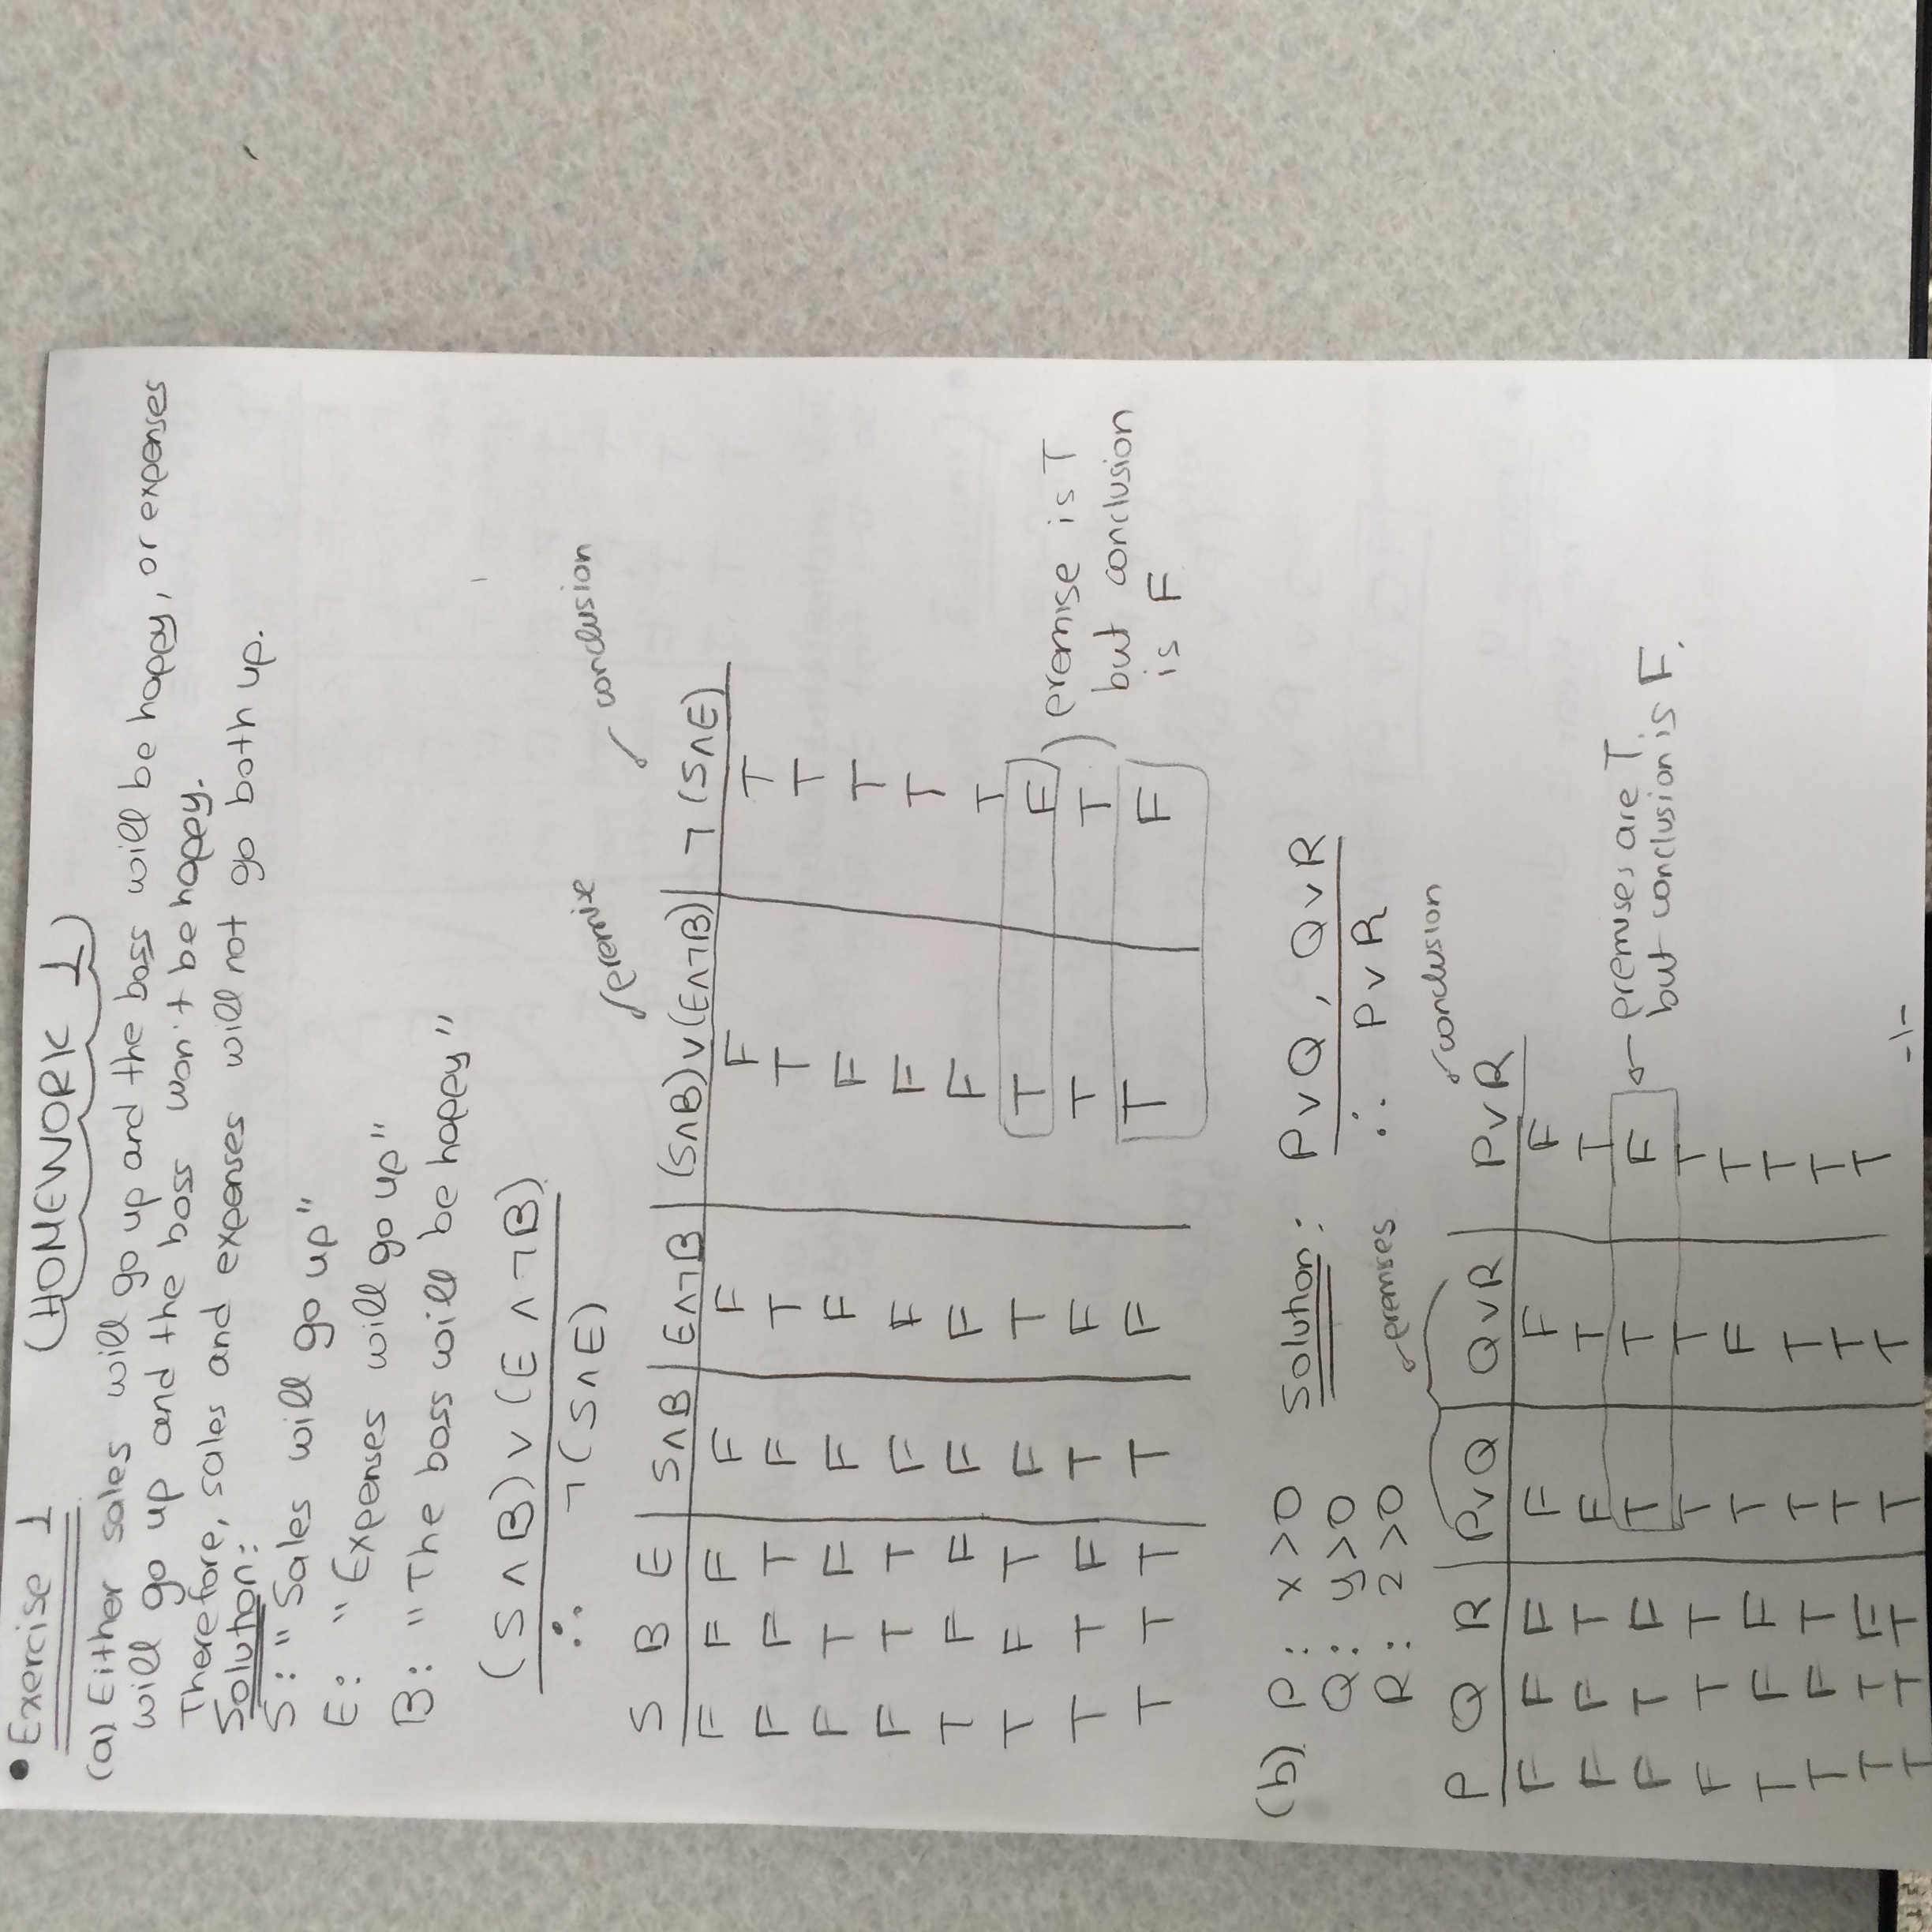 • Exercise 1 (HOMEWORK 1)
(a) Either sales will go up and the boss will be happy, or expenses
will go up and the boss won't be happy.
Therefore, sales and expenses will not go both up.
Solution:
S: "Sales will go up"
E: "Expenses will go up"
B: "The boss will be happy"
(S∧B)∨(E∧¬B)
∴ ¬(S∧E)
premise conclusion
S B E S∧B E∧¬B (S∧B)∨(E∧¬B) ¬(S∧E)
F F F F F F T
F F T F T T T
F T F F F F T
F T T F F F T
T F F F F F T
T F T F T T F
T T F T F T T
T T T T F T F
premise is T
but conclusion
is F
(b) P: x>0 Solution: P∨Q, Q∨R
Q: y>0 ∴ P∨R
R: z>0
premises conclusion
P Q R P∨Q Q∨R P∨R
F F F F F F
F F T F T T
F T F T T F
premises are T
but conclusion is F.
F T T T T T
T F F T F T
T F T T T T
T T F T T T
T T T T T T
-1-